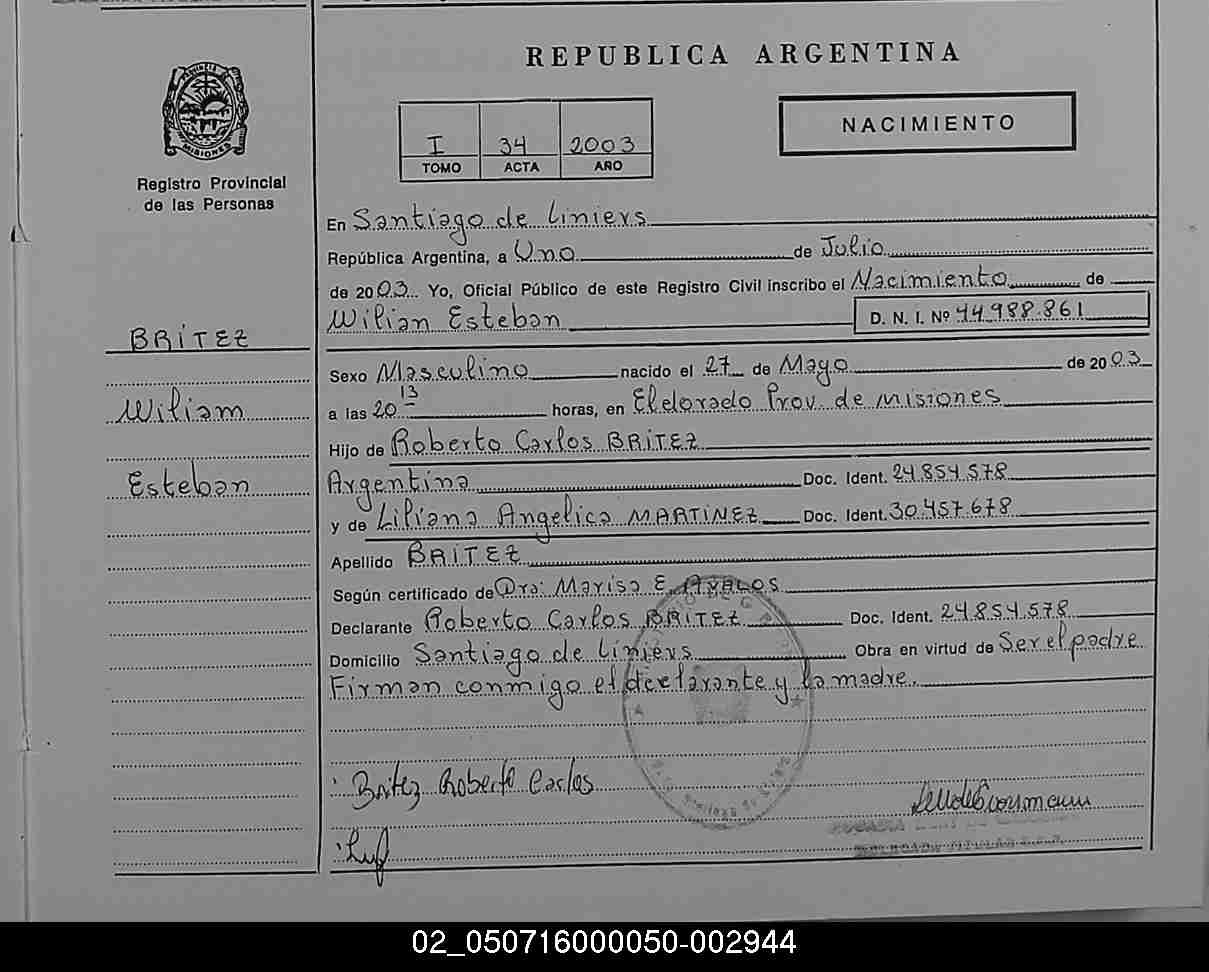 REPUBLICA ARGENTINA
PROVINCIA DE
MISIONES
Registro Provincial
de las Personas
I 34 2003
TOMO ACTA AÑO
NACIMIENTO
En Santiago de Liniers
República Argentina, a Uno de Julio
de 2003 Yo, Oficial Público de este Registro Civil inscribo el Nacimiento de
Wilian Esteban D. N. I. Nº 44.988.861
BRÍTEZ
Wiliam
Esteban
Sexo Masculino nacido el 27 de Mayo de 2003
a las 20 13 horas, en Eldorado Prov. de misiones
Hijo de Roberto Carlos BRÍTEZ
Argentina Doc. Ident. 24.854.578
y de Liliana Angelica MARTINEZ Doc. Ident. 30.457.678
Apellido BRÍTEZ
Según certificado de Dra: Marisa E. AVALOS
Declarante Roberto Carlos BRITEZ Doc. Ident. 24.854.578
Domicilio Santiago de Liniers Obra en virtud de Ser el padre
Firman conmigo el declarante y la madre.
Britez Roberto Carlos
02_050716000050-002944